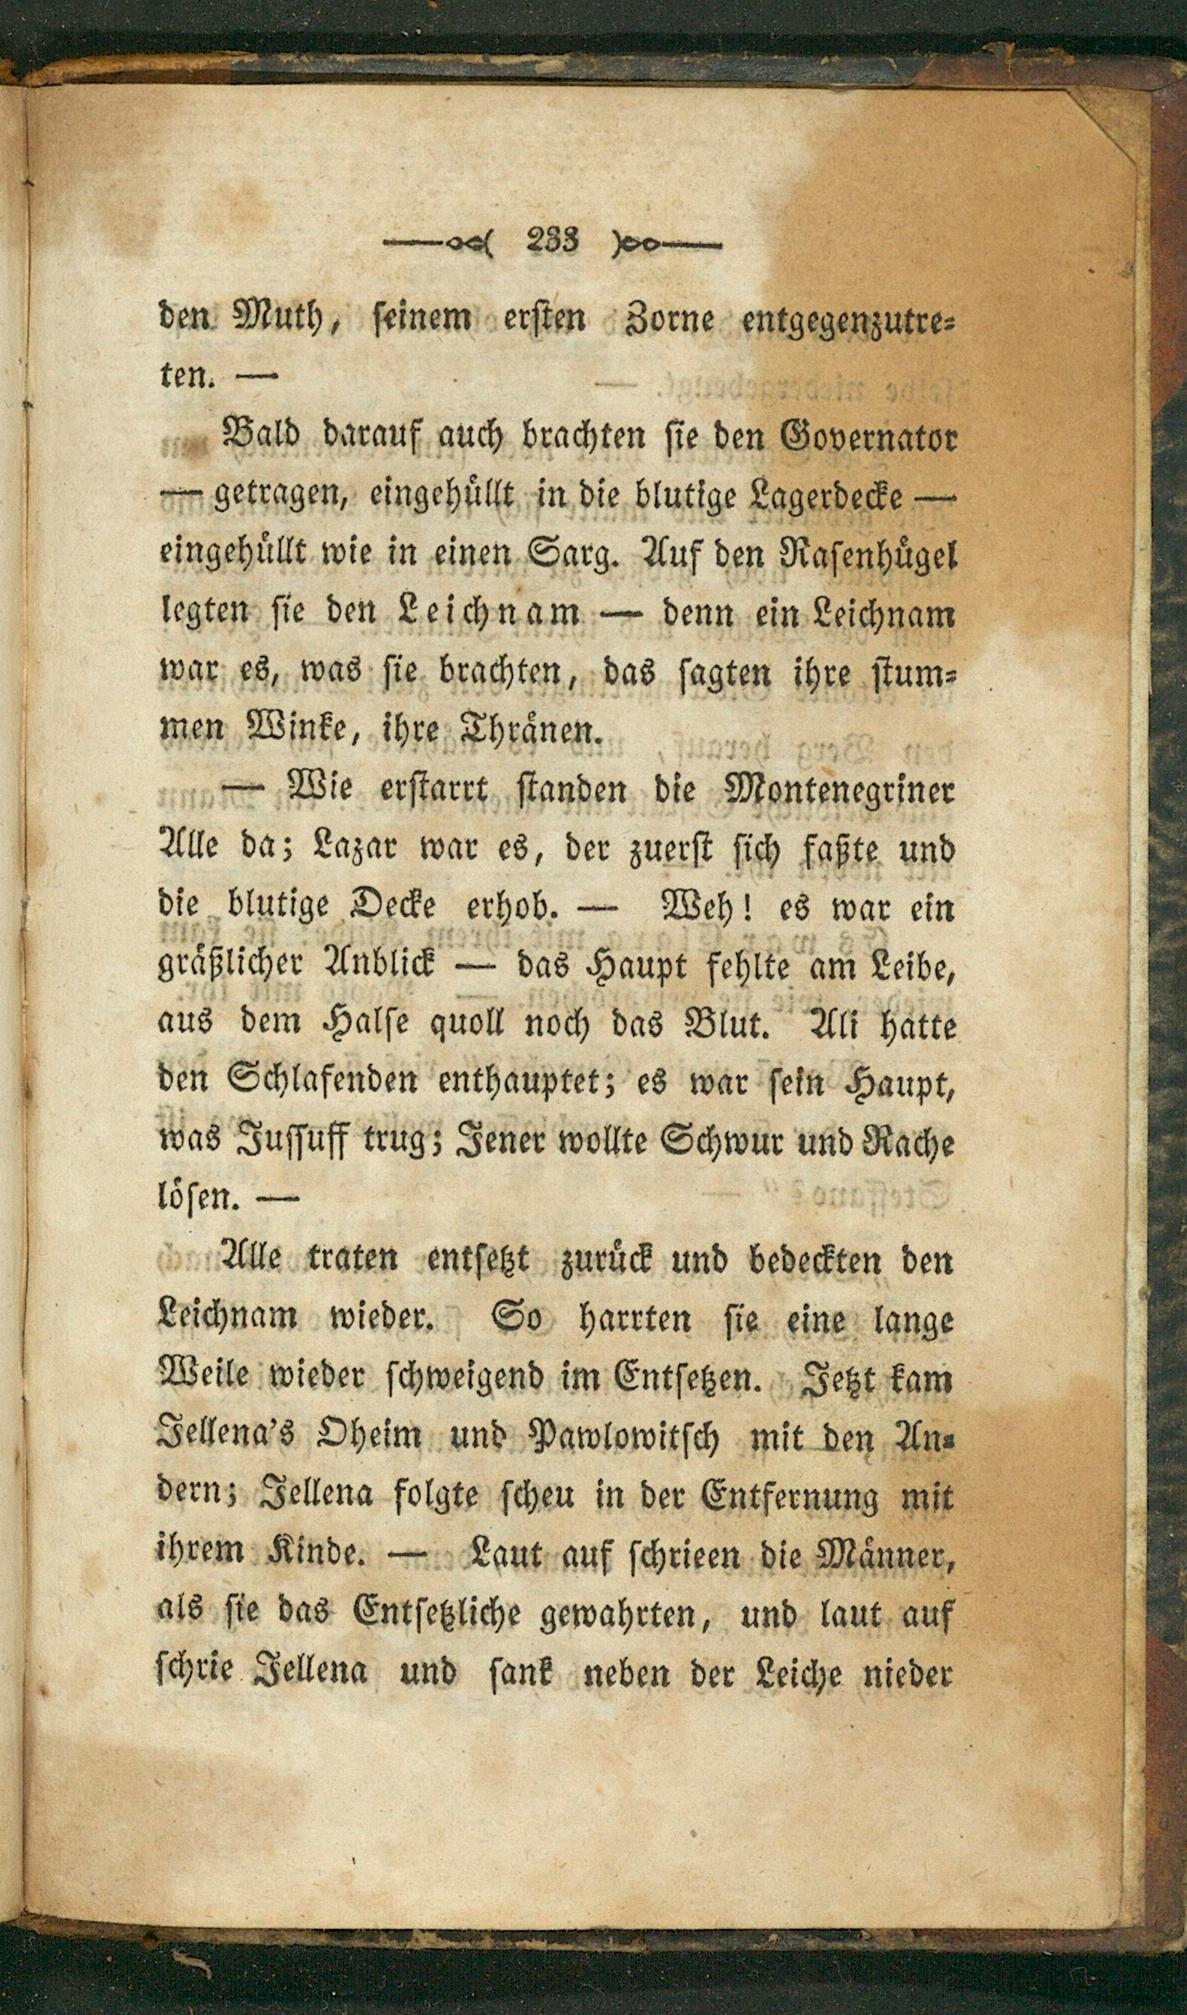 233
den Muth, seinem ersten Zorne entgegenzutre-
ten. —
Bald darauf auch brachten sie den Governator
— getragen, eingehüllt in die blutige Lagerdecke —
eingehüllt wie in einen Sarg. Auf den Rasenhügel
legten sie den Leichnam — denn ein Leichnam
war es, was sie brachten, das sagten ihre stum-
men Winke, ihre Thränen.
— Wie erstarrt standen die Montenegriner
Alle da; Lazar war es, der zuerst sich faßte und
die blutige Decke erhob. — Weh! es war ein
gräßlicher Anblick — das Haupt fehlte am Leibe,
aus dem Halse quoll noch das Blut. Ali hatte
den Schlafenden enthauptet; es war sein Haupt,
was Jussuff trug; Jener wollte Schwur und Rache
lösen. —
Alle traten entsetzt zurück und bedeckten den
Leichnam wieder. So harrten sie eine lange
Weile wieder schweigend im Entsetzen. Jetzt kam
Jellena's Oheim und Pawlowitsch mit den An-
dern; Jellena folgte scheu in der Entfernung mit
ihrem Kinde. — Laut auf schrieen die Männer,
als sie das Entsetzliche gewahrten, und laut auf
schrie Jellena und sank neben der Leiche nieder